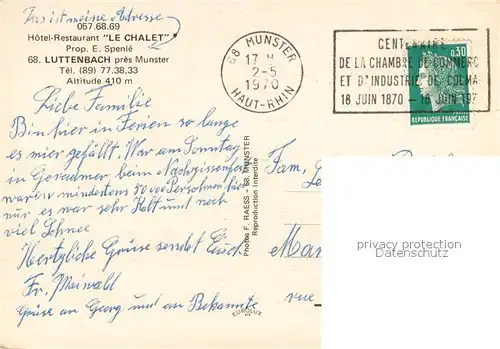 Das ist meine Adresse
057.68.69
Hôtel-Restaurant "LE CHALET"
Prop. E. Spenlé
68. LUTTENBACH près Munster
Tél. (89) 77.38.33
Altitude 410 m
68 MUNSTER
17 H
2-5
1970
HAUT-RHIN
CENTENAIRE
DE LA CHAMBRE DE COMMERC
ET D'INDUSTRIE DE COLMA
18 JUIN 1870 - 18 JUIN 197
0,30
REPUBLIQUE FRANÇAISE
Liebe Familie
Bin hier in Ferien so lange
es mier gefällt. War am Sonntag
in Gerardmer beim Narzissenfest
waren mindestens 50000 Personen hier
nur es war sehr Kalt und noch
viel Schnee
Hertzliche Grüse sendet Euch
Fr. Maiwald
Grüse an Georg und an Bekannte
Photos F. RAESS - 68. MUNSTER
Reproduction Interdite
EUROLUX
Fam,
Le
Ma
rue
privacy protection
Datenschutz